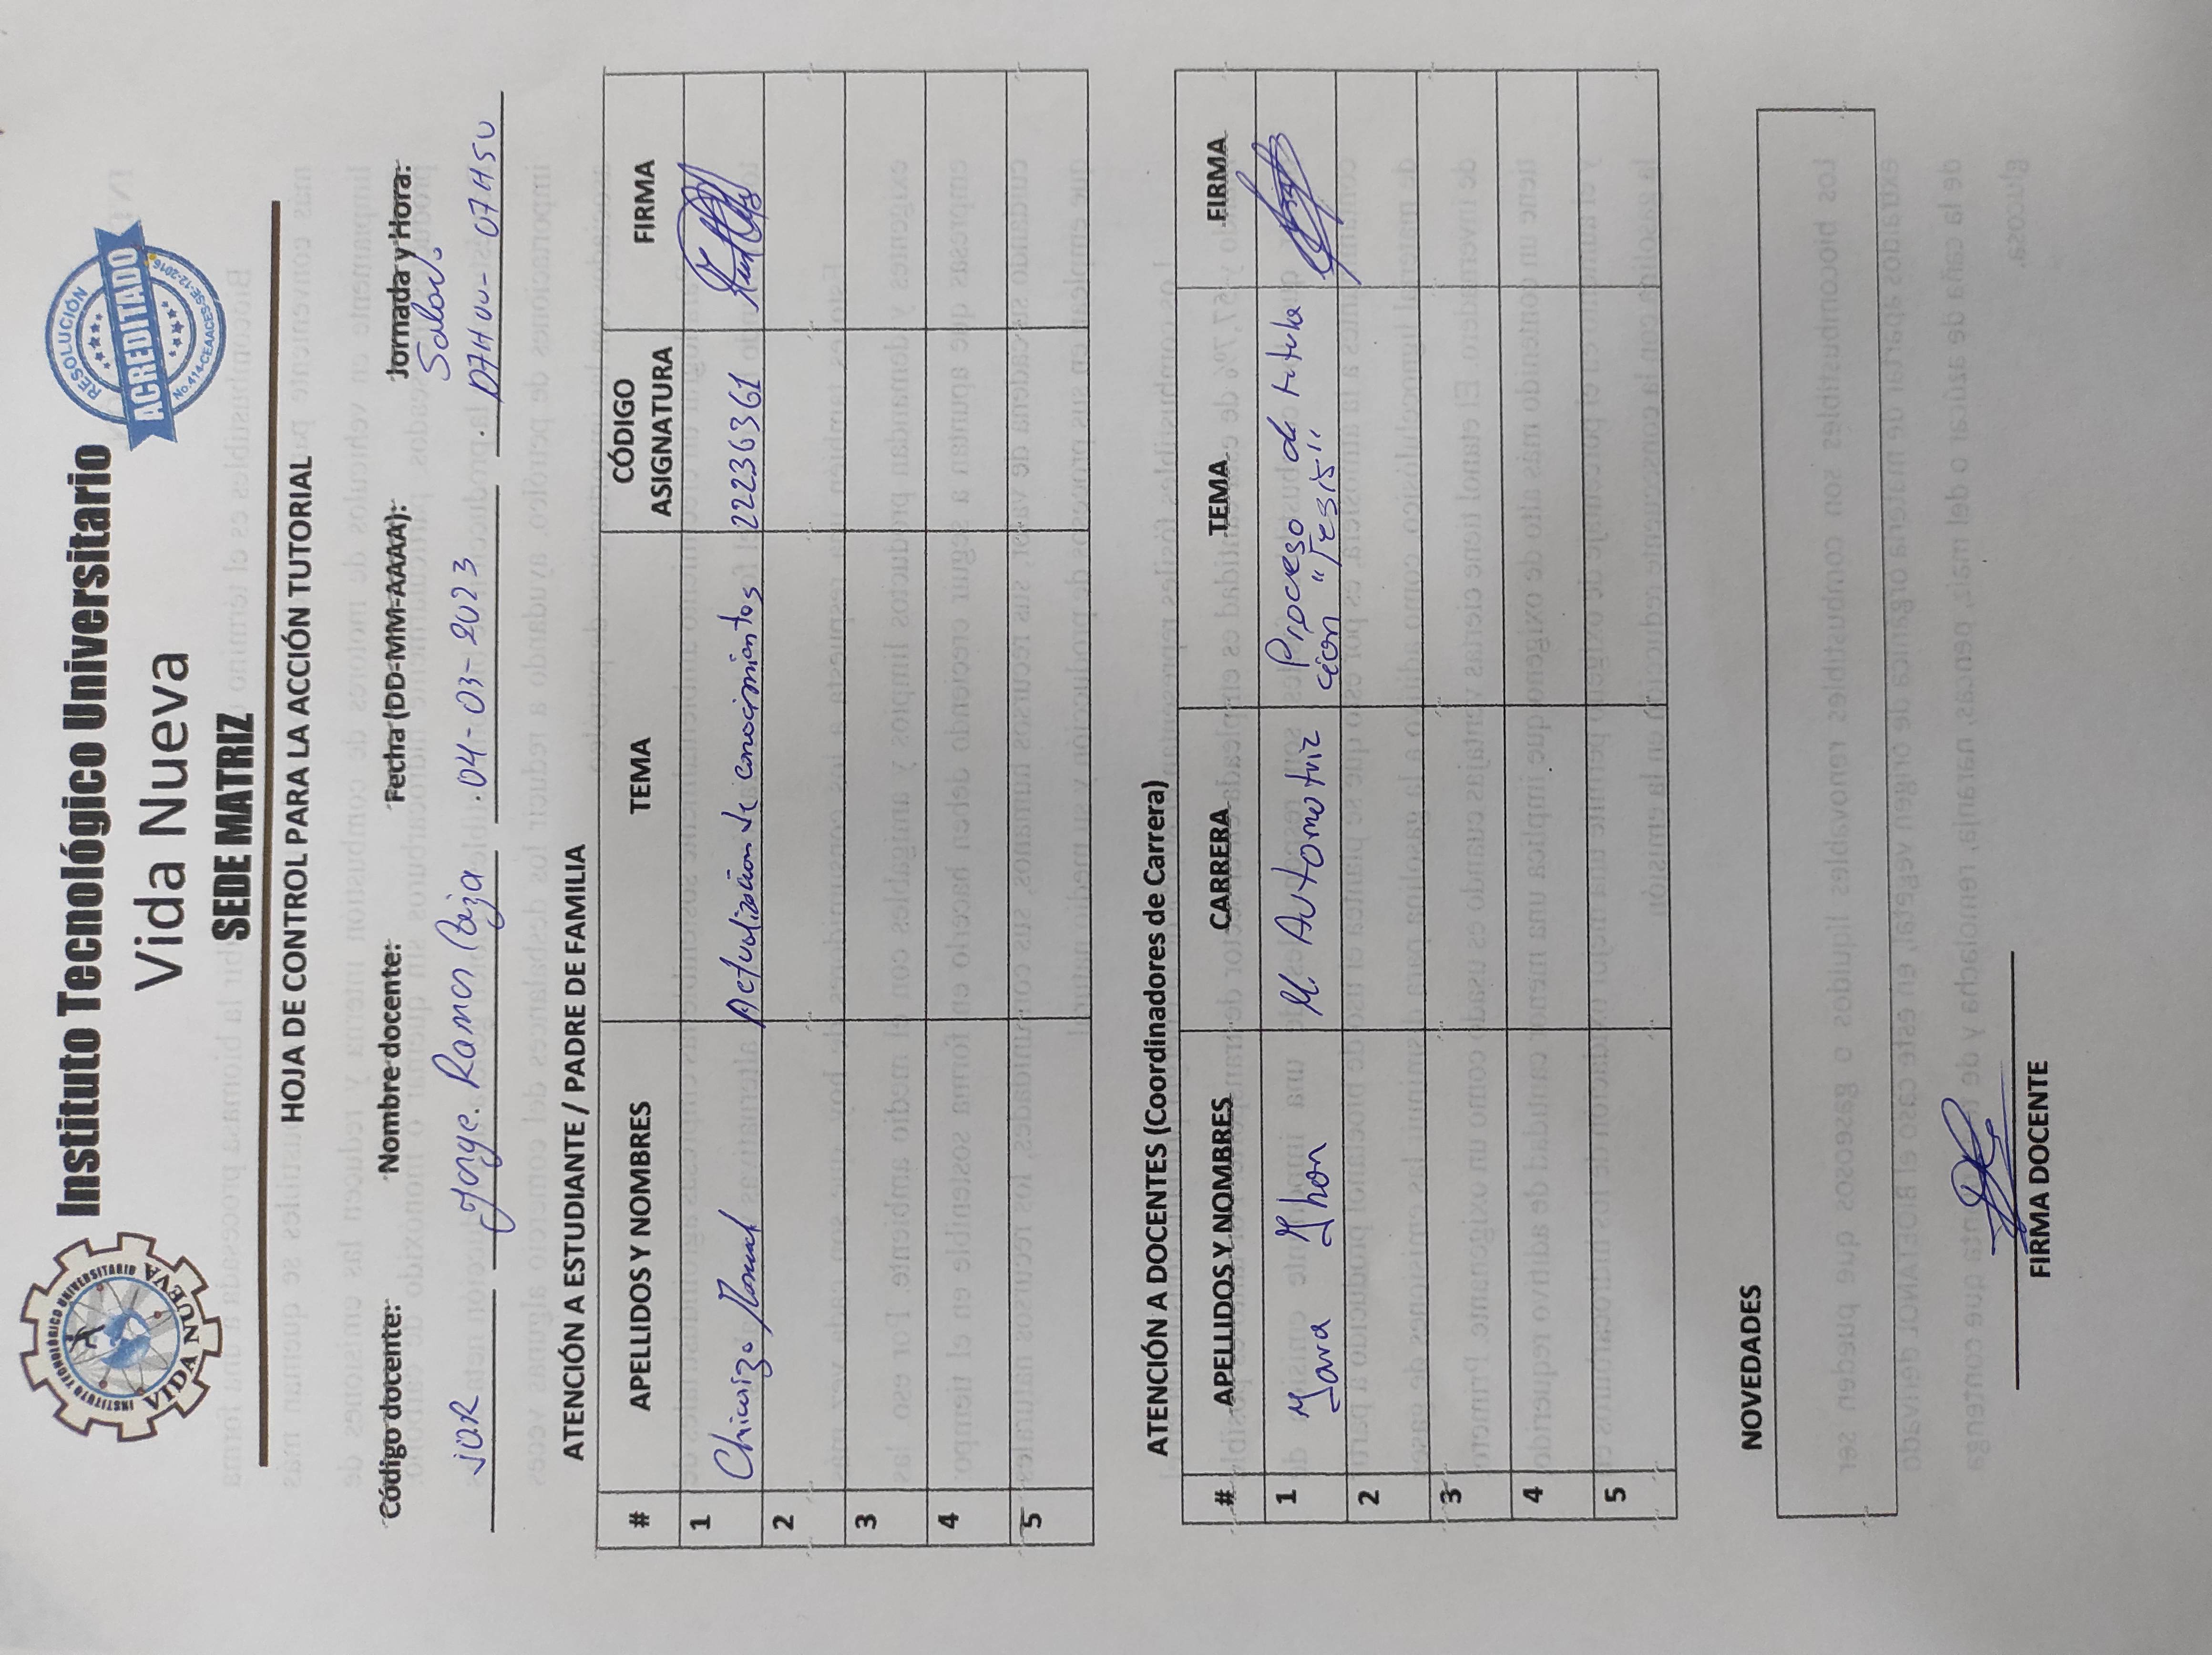 INSTITUTO TECNOLÓGICO UNIVERSITARIO
VIDA NUEVA
Instituto Tecnológico Universitario
Vida Nueva
SEDE MATRIZ
RESOLUCIÓN
ACREDITADO
No.414-CEAACES-SE-12-2016
HOJA DE CONTROL PARA LA ACCIÓN TUTORIAL
Código docente: Nombre docente: Fecha (DD-MM-AAAA): Jornada y Hora:
JOR Jorge Ramos 04-03-2023 07H00- 07H50
ATENCIÓN A ESTUDIANTE / PADRE DE FAMILIA
# APELLIDOS Y NOMBRES TEMA CÓDIGO ASIGNATURA FIRMA
1 Chicaiza Manuel Actualización de conocimientos 22236361
2
3
4
5
ATENCIÓN A DOCENTES (Coordinadores de Carrera)
# APELLIDOS Y NOMBRES CARRERA TEMA FIRMA
1 Jara Jhon M. Automotriz Proceso de titula
cion "Tesis"
2
3
4
5
NOVEDADES
FIRMA DOCENTE